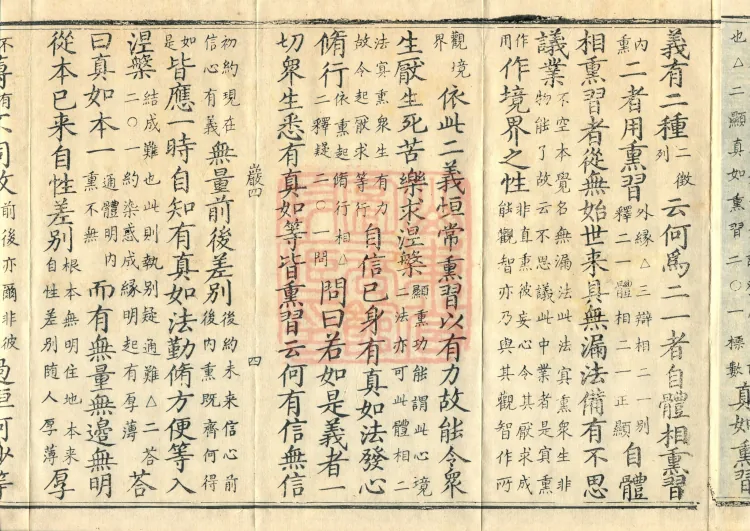 也△二顯真如熏習二○一標數真如熏習
義有二種二徵列云何為二一者自體相熏習
內熏二者用熏習外緣△三辯相二一別釋二一體相二一正顯自體
相熏習者從無始世來具無漏法備有不思
議業不空本覺名無漏法此法冥熏眾生非物能了故云不思議此中業者是冥熏
作用作境界之性非直熏彼妄心令其厭求成能觀智亦乃與其觀智作所
觀境界依此二義恒常熏習以有力故能令眾
生厭生死苦樂求涅槃顯熏功能謂此心境二法亦可此體相二
法冥熏眾生有力故令起厭求等行自信己身有真如法發心
脩行依熏起脩行相△二釋疑二○一問問曰若如是義者一
切眾生悉有真如等皆熏習云何有信無信
嚴四 四
初約現在信心有義無量前後差別後約未來信心前後內熏既齊何得
如是皆應一時自知有真如法勤脩方便等入
涅槃結成難也此則執別疑通難△二答二○一約染惑成緣明起有厚薄答
曰真如本一通體明內熏不無而有無量無邊無明
從本已來自性差別根本無明住地本來自性差別隨人厚薄厚
薄有不同故前後亦爾非彼過恒河沙等